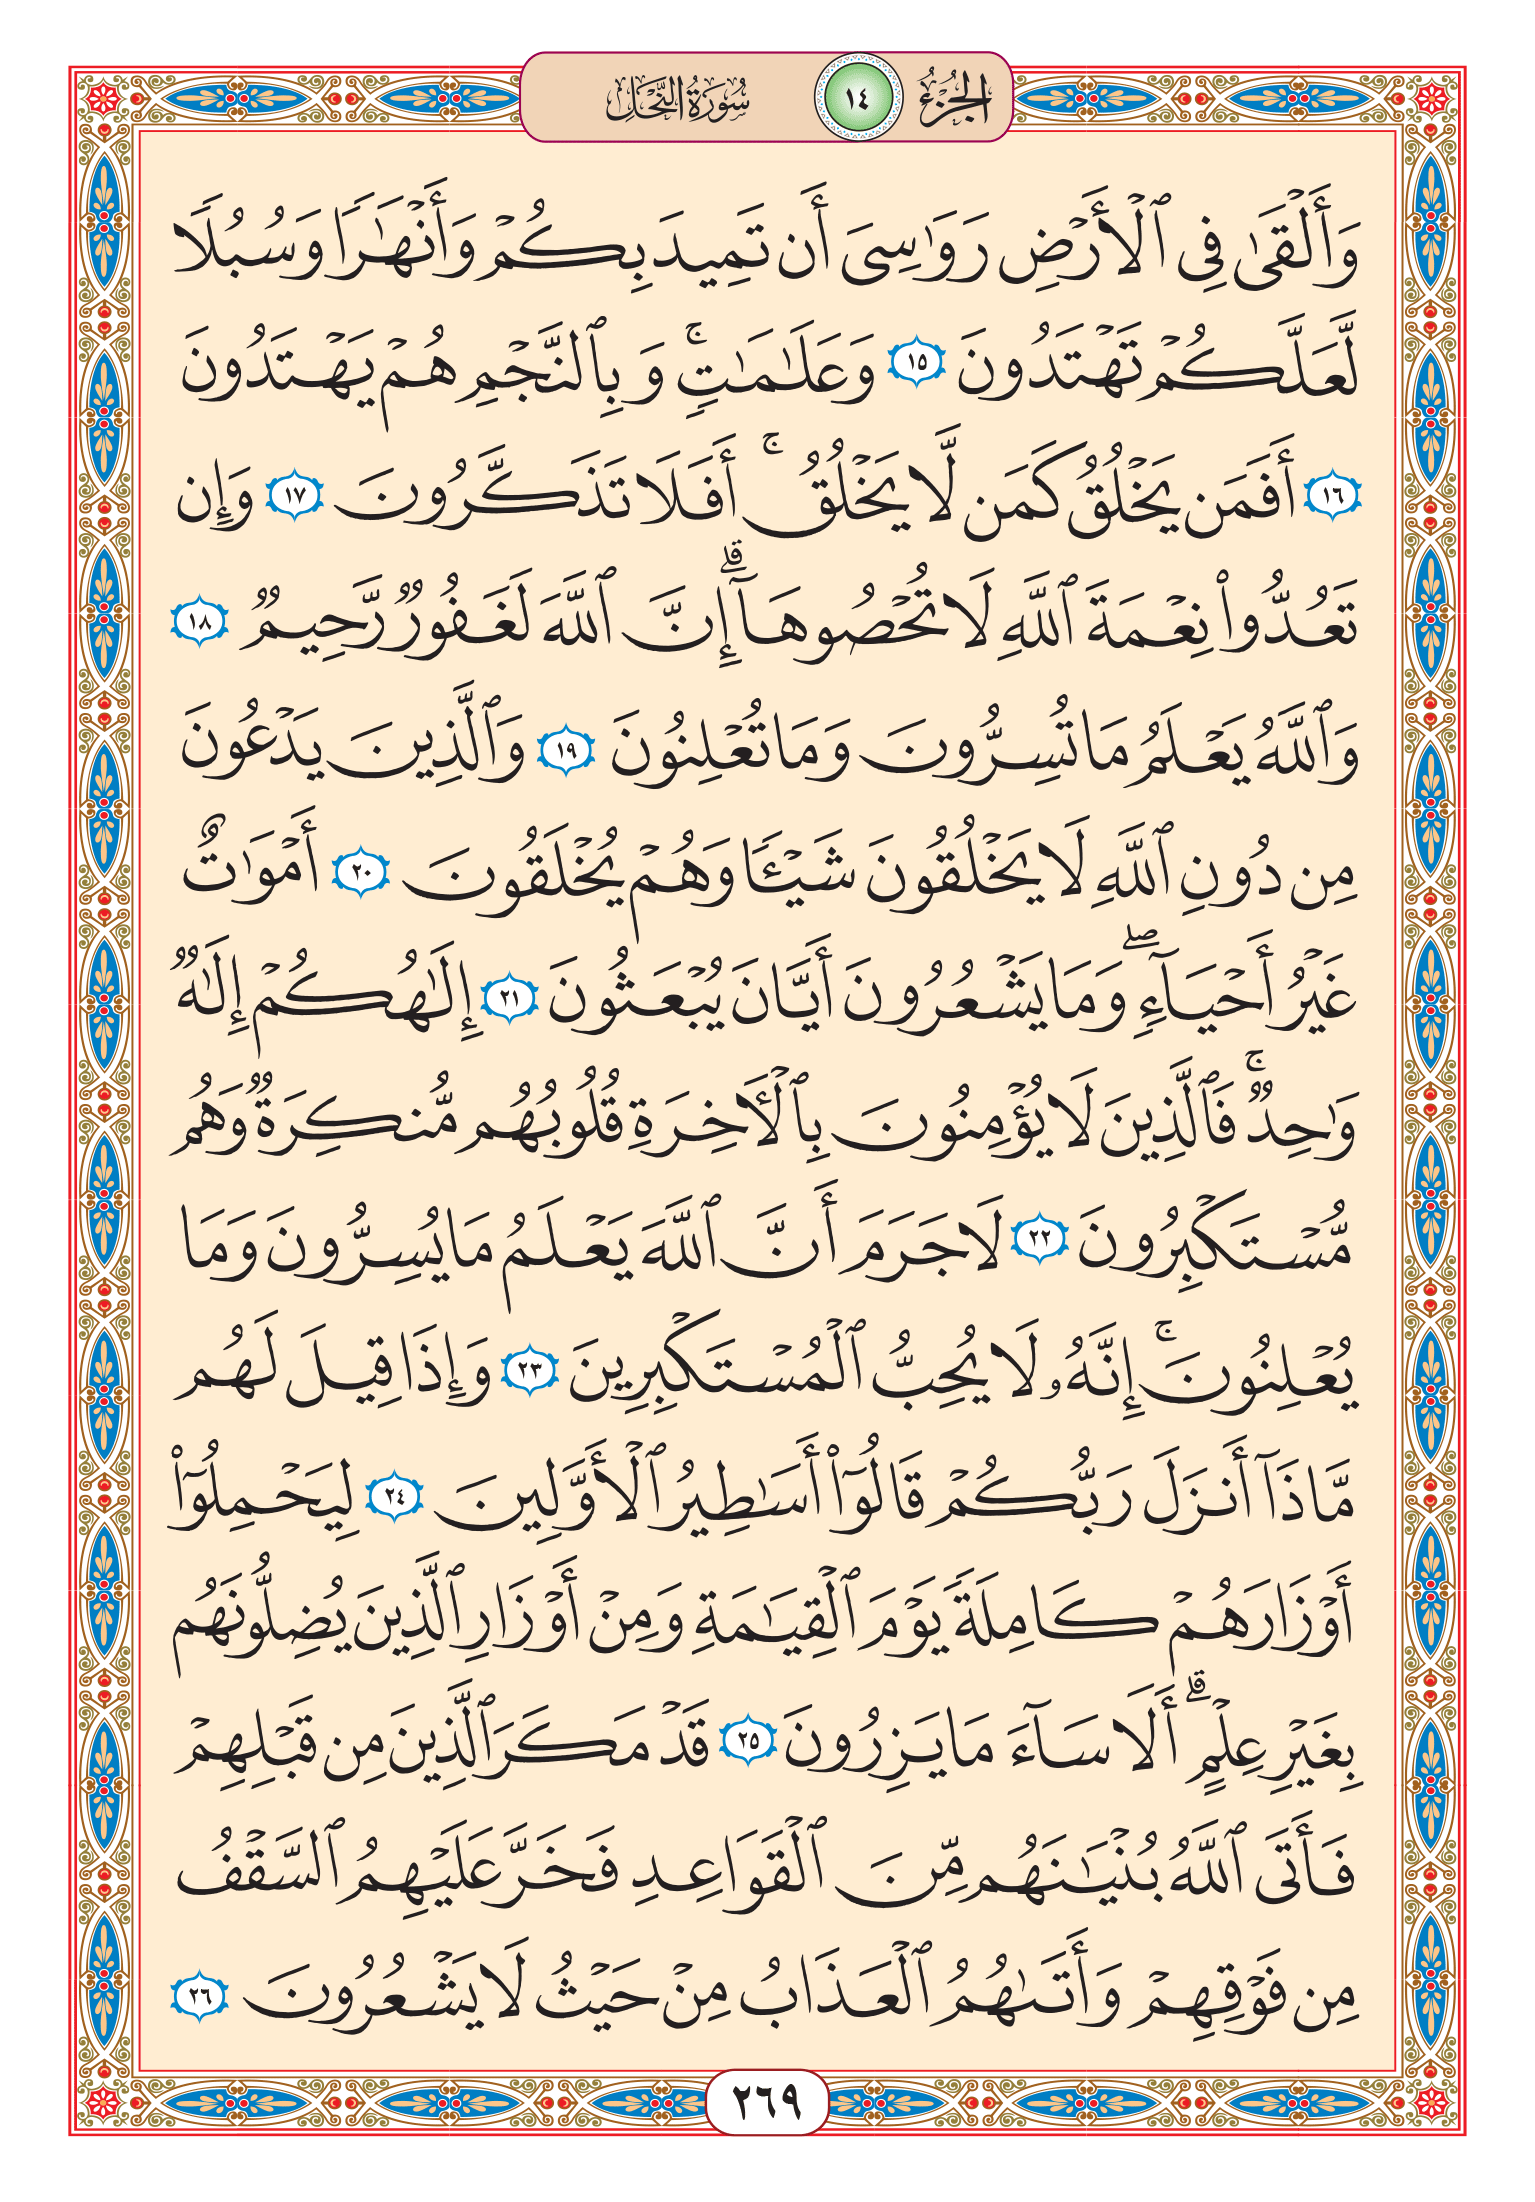 الجزء ١٤ سورة النحل
وَأَلْقَىٰ فِى ٱلْأَرْضِ رَوَٰسِىَ أَن تَمِيدَ بِكُمْ وَأَنْهَٰرًا وَسُبُلًا
لَّعَلَّكُمْ تَهْتَدُونَ ١٥ وَعَلَٰمَٰتٍ ۚ وَبِٱلنَّجْمِ هُمْ يَهْتَدُونَ
١٦ أَفَمَن يَخْلُقُ كَمَن لَّا يَخْلُقُ ۚ أَفَلَا تَذَكَّرُونَ ١٧ وَإِن
تَعُدُّوا۟ نِعْمَةَ ٱللَّهِ لَا تُحْصُوهَآ ۗ إِنَّ ٱللَّهَ لَغَفُورٌ رَّحِيمٌ ١٨
وَٱللَّهُ يَعْلَمُ مَا تُسِرُّونَ وَمَا تُعْلِنُونَ ١٩ وَٱلَّذِينَ يَدْعُونَ
مِن دُونِ ٱللَّهِ لَا يَخْلُقُونَ شَيْـًٔا وَهُمْ يُخْلَقُونَ ٢٠ أَمْوَٰتٌ
غَيْرُ أَحْيَآءٍ ۖ وَمَا يَشْعُرُونَ أَيَّانَ يُبْعَثُونَ ٢١ إِلَٰهُكُمْ إِلَٰهٌ
وَٰحِدٌ ۚ فَٱلَّذِينَ لَا يُؤْمِنُونَ بِٱلْـَٔاخِرَةِ قُلُوبُهُم مُّنكِرَةٌ وَهُم
مُّسْتَكْبِرُونَ ٢٢ لَا جَرَمَ أَنَّ ٱللَّهَ يَعْلَمُ مَا يُسِرُّونَ وَمَا
يُعْلِنُونَ ۚ إِنَّهُۥ لَا يُحِبُّ ٱلْمُسْتَكْبِرِينَ ٢٣ وَإِذَا قِيلَ لَهُم
مَّاذَآ أَنزَلَ رَبُّكُمْ قَالُوٓا۟ أَسَٰطِيرُ ٱلْأَوَّلِينَ ٢٤ لِيَحْمِلُوٓا۟
أَوْزَارَهُمْ كَامِلَةً يَوْمَ ٱلْقِيَٰمَةِ وَمِنْ أَوْزَارِ ٱلَّذِينَ يُضِلُّونَهُم
بِغَيْرِ عِلْمٍ ۗ أَلَا سَآءَ مَا يَزِرُونَ ٢٥ قَدْ مَكَرَ ٱلَّذِينَ مِن قَبْلِهِمْ
فَأَتَى ٱللَّهُ بُنْيَٰنَهُم مِّنَ ٱلْقَوَاعِدِ فَخَرَّ عَلَيْهِمُ ٱلسَّقْفُ
مِن فَوْقِهِمْ وَأَتَىٰهُمُ ٱلْعَذَابُ مِنْ حَيْثُ لَا يَشْعُرُونَ ٢٦
٢٦٩